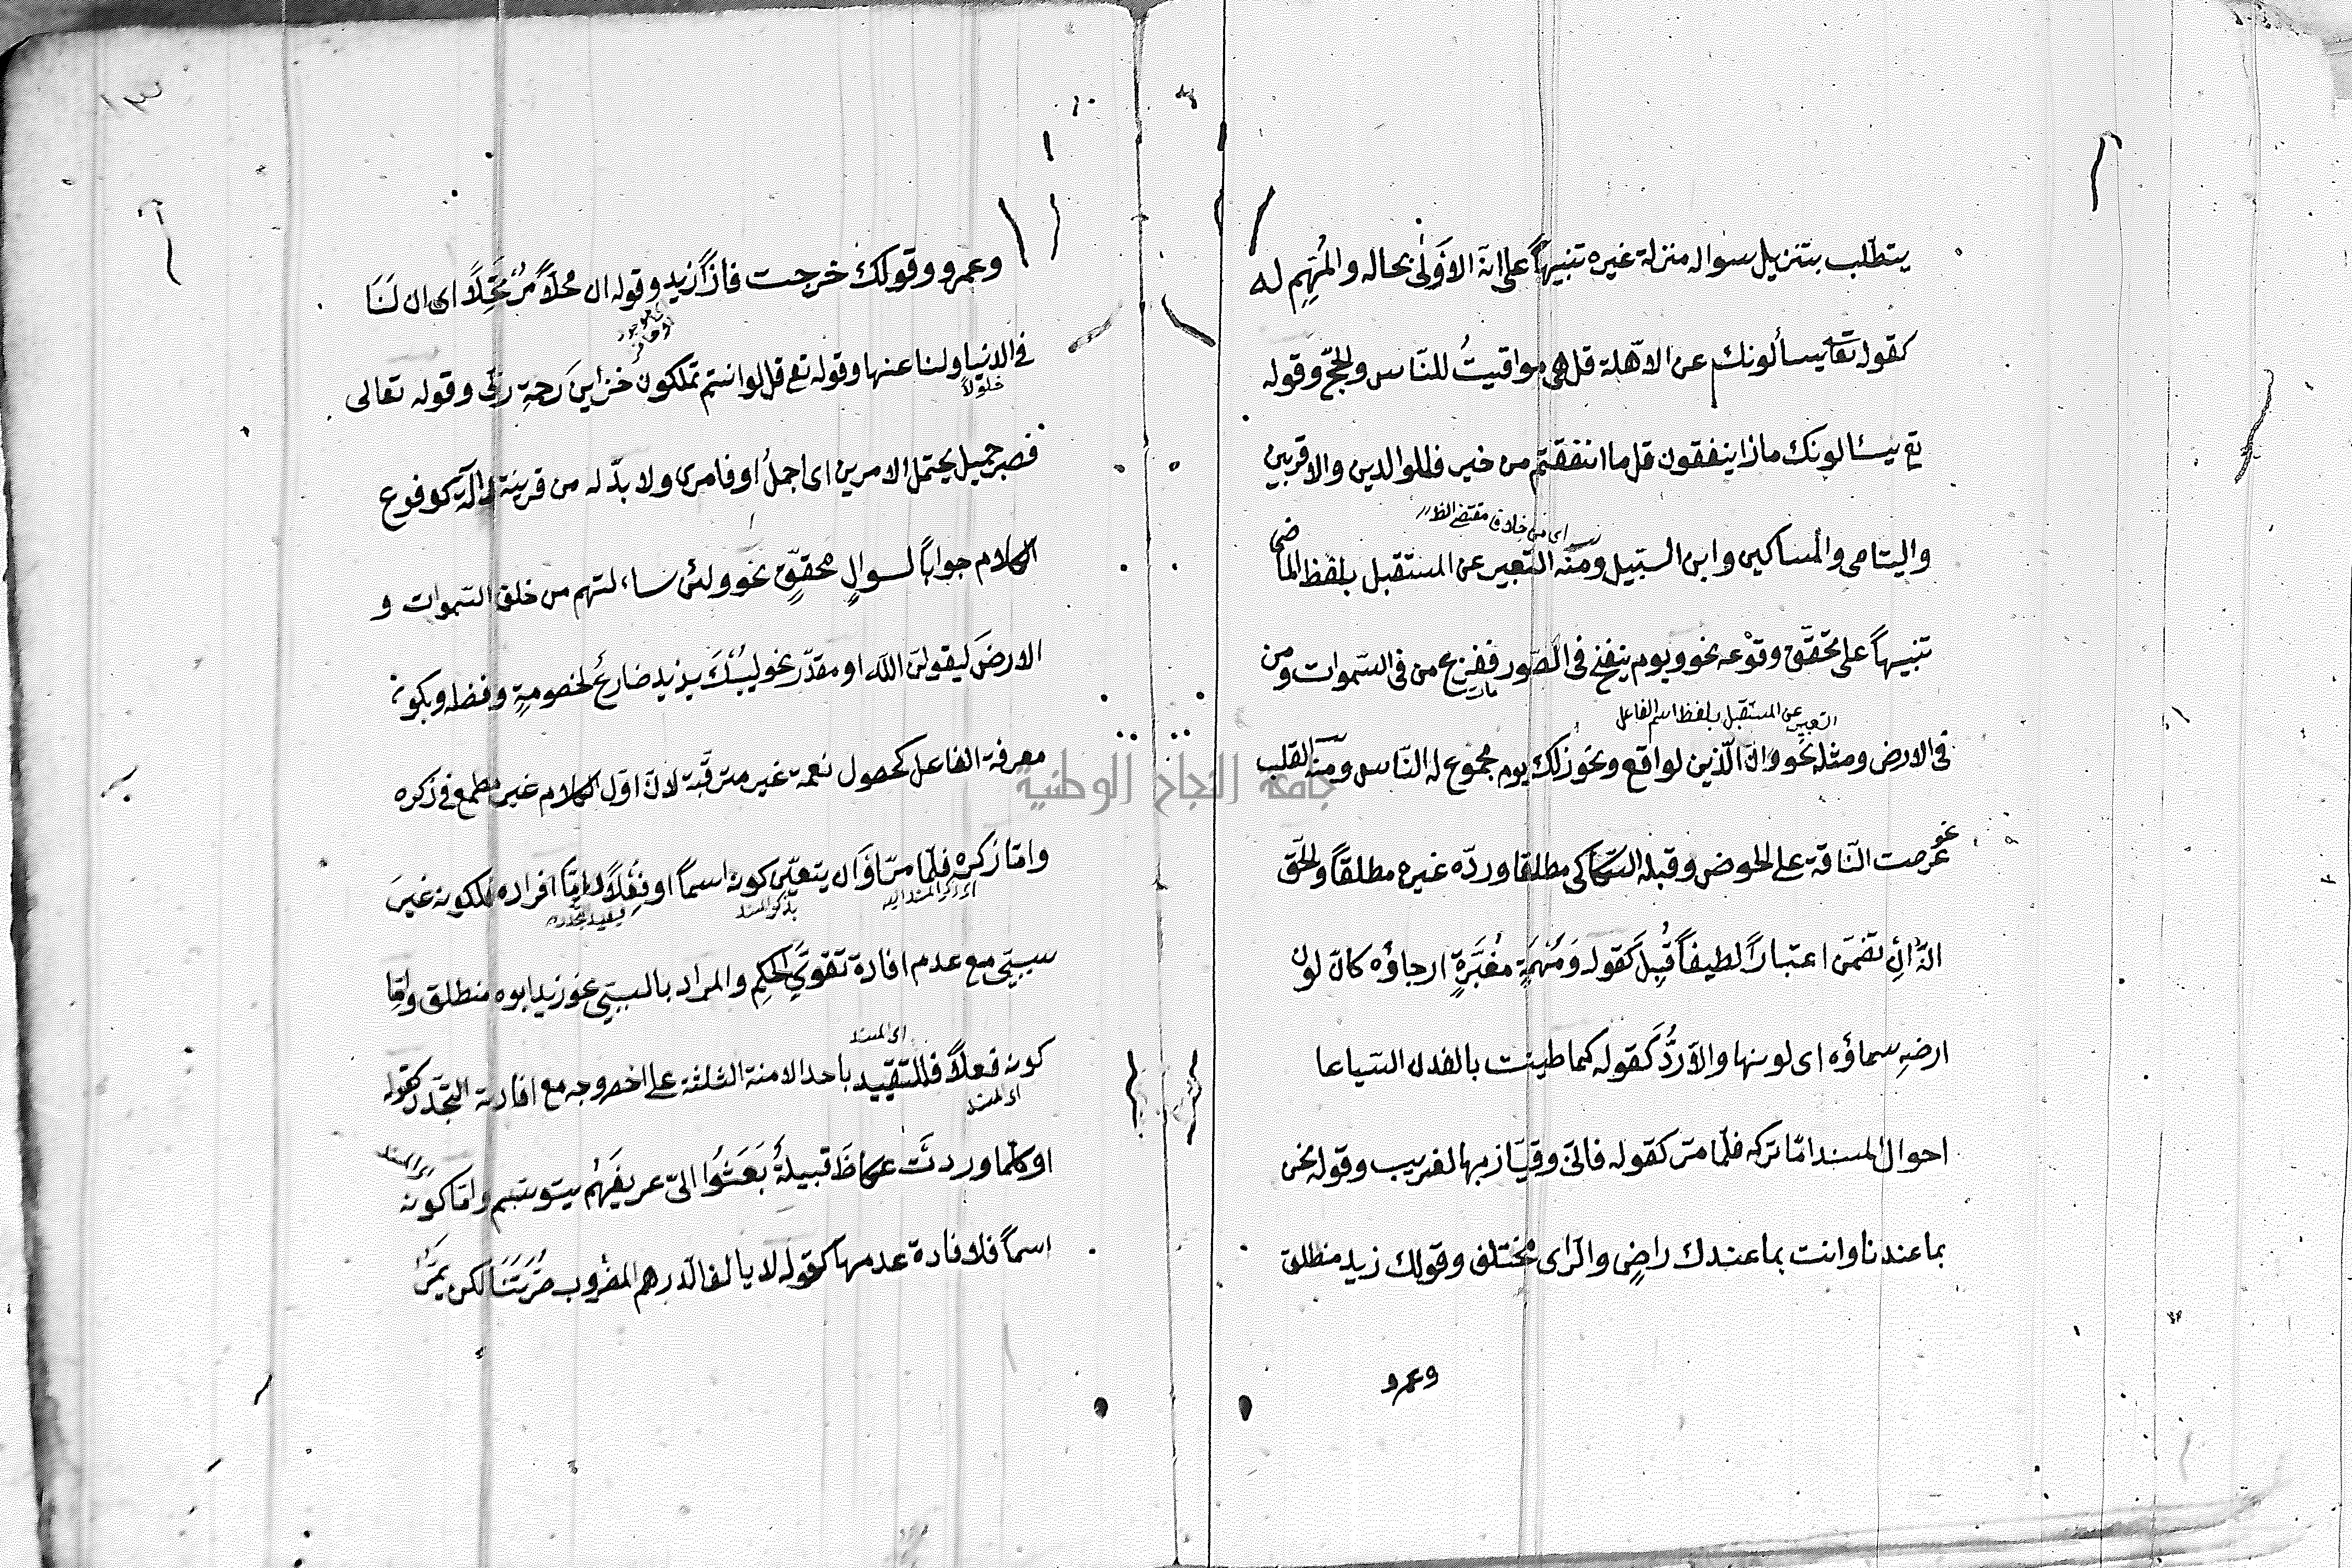 يتطلب بتنزيل سواله منزلة غيره تنبيهاً على انه الاَوْلى بحاله والمُهِم له
كقوله تعا يسألونك عن الاهلة قل هى مواقيتُ للنّاس والحجّ وقوله
تع يسئالونك ماذا ينفقون قل ما انفقتم من خير فللوالدين والاقربين
اى من خلاف مقتضى الظ
واليتامى والمساكين وابن السّبيل ومنه التّعبير عن المستقبل بلفظ الماضى
تنبيهاً على تحقّق وقوعه نحو ويوم ينفخ فى الصّور ففزع من فى السّموات ومن
التعبير عن المستقبل بلفظ اسم الفاعل
فى الارض ومثله نحو وانّ الدّين لواقع ونحو ذلك يوم مجموع له النّاس ومنه القلب
نحو عرضت النّاقة على الحوض وقبله السّكاكى مطلقا وردّه غيره مطلقاً والحقّ
انّه ان تضمّن اعتباراً لطيفاً قُبِلَ كقوله وَمَهْمَهٍ مغْبَرَّةٍ ارجاؤه كانّ لون
ارضهِ سماؤه اى لونها والّا رُدَّ كقوله كما طينت بالفدن السّياعا
احوال المسند امّا تركه فلما مرّ كقوله فانى وقيّار بها لغريب وقوله نحن
بما عندنا وانت بما عندك راضٍ والرّاى مختلف وقولك زيد منطلق
وعمرو
وعمرو وقولك خرجت فاذا زيد وقوله ان محلاً وان مرتحلاً اى ان لَنَا
فى الدنيا ولنا عنها وقوله تع قل لو انتم تملكون خزأين رحمة ربّى وقوله تعالى
فصبر جميل يحتمل الامرين اى اجملُ او فامرى ولا بدّ له من قرينة دالّة كوقوع
الكلام جواباً لسوالٍ محقّقٍ نحو ولئن سالتهم من خلق السّموات و
الارضَ ليقولنّ اللّه او مقدّر نحو ليُبْكَ يزيد ضارعٌ لخصومةٍ وفضله وبكون
معرفة الفاعل كحصول نعمة غير مترقّبة لانّ اوّل الكلام غير مطمع فى ذكره
وامّا ذكره فلما مرّ او ان يتعيّن كونه اسماً او فِعْلاً وامّا افراده فلكونه غيرَ
اى ذكر المسند اليه
بذكر المسند
فيفيد تجدده
سببىّ مع عدم افادة تقوّى الحكمِ والمراد بالسببىّ نحو زيد ابوه منطلق وامّا
اى المسند
كونه فعلاً فللتقييد باحد الازمنة الثلثة على اخصر وجه مع افادة التجدّد كقوله
اى المسند
او كلّما وردتْ عكاظَ قبيلةٌ بَعَثُوا الىّ عريفَهُم يتوسّم وامّا كونه
اسماً فلافادة عدمها كقوله لا يالف الدّرهم المضروب صُرّتَنا لكن يَمُرُّ